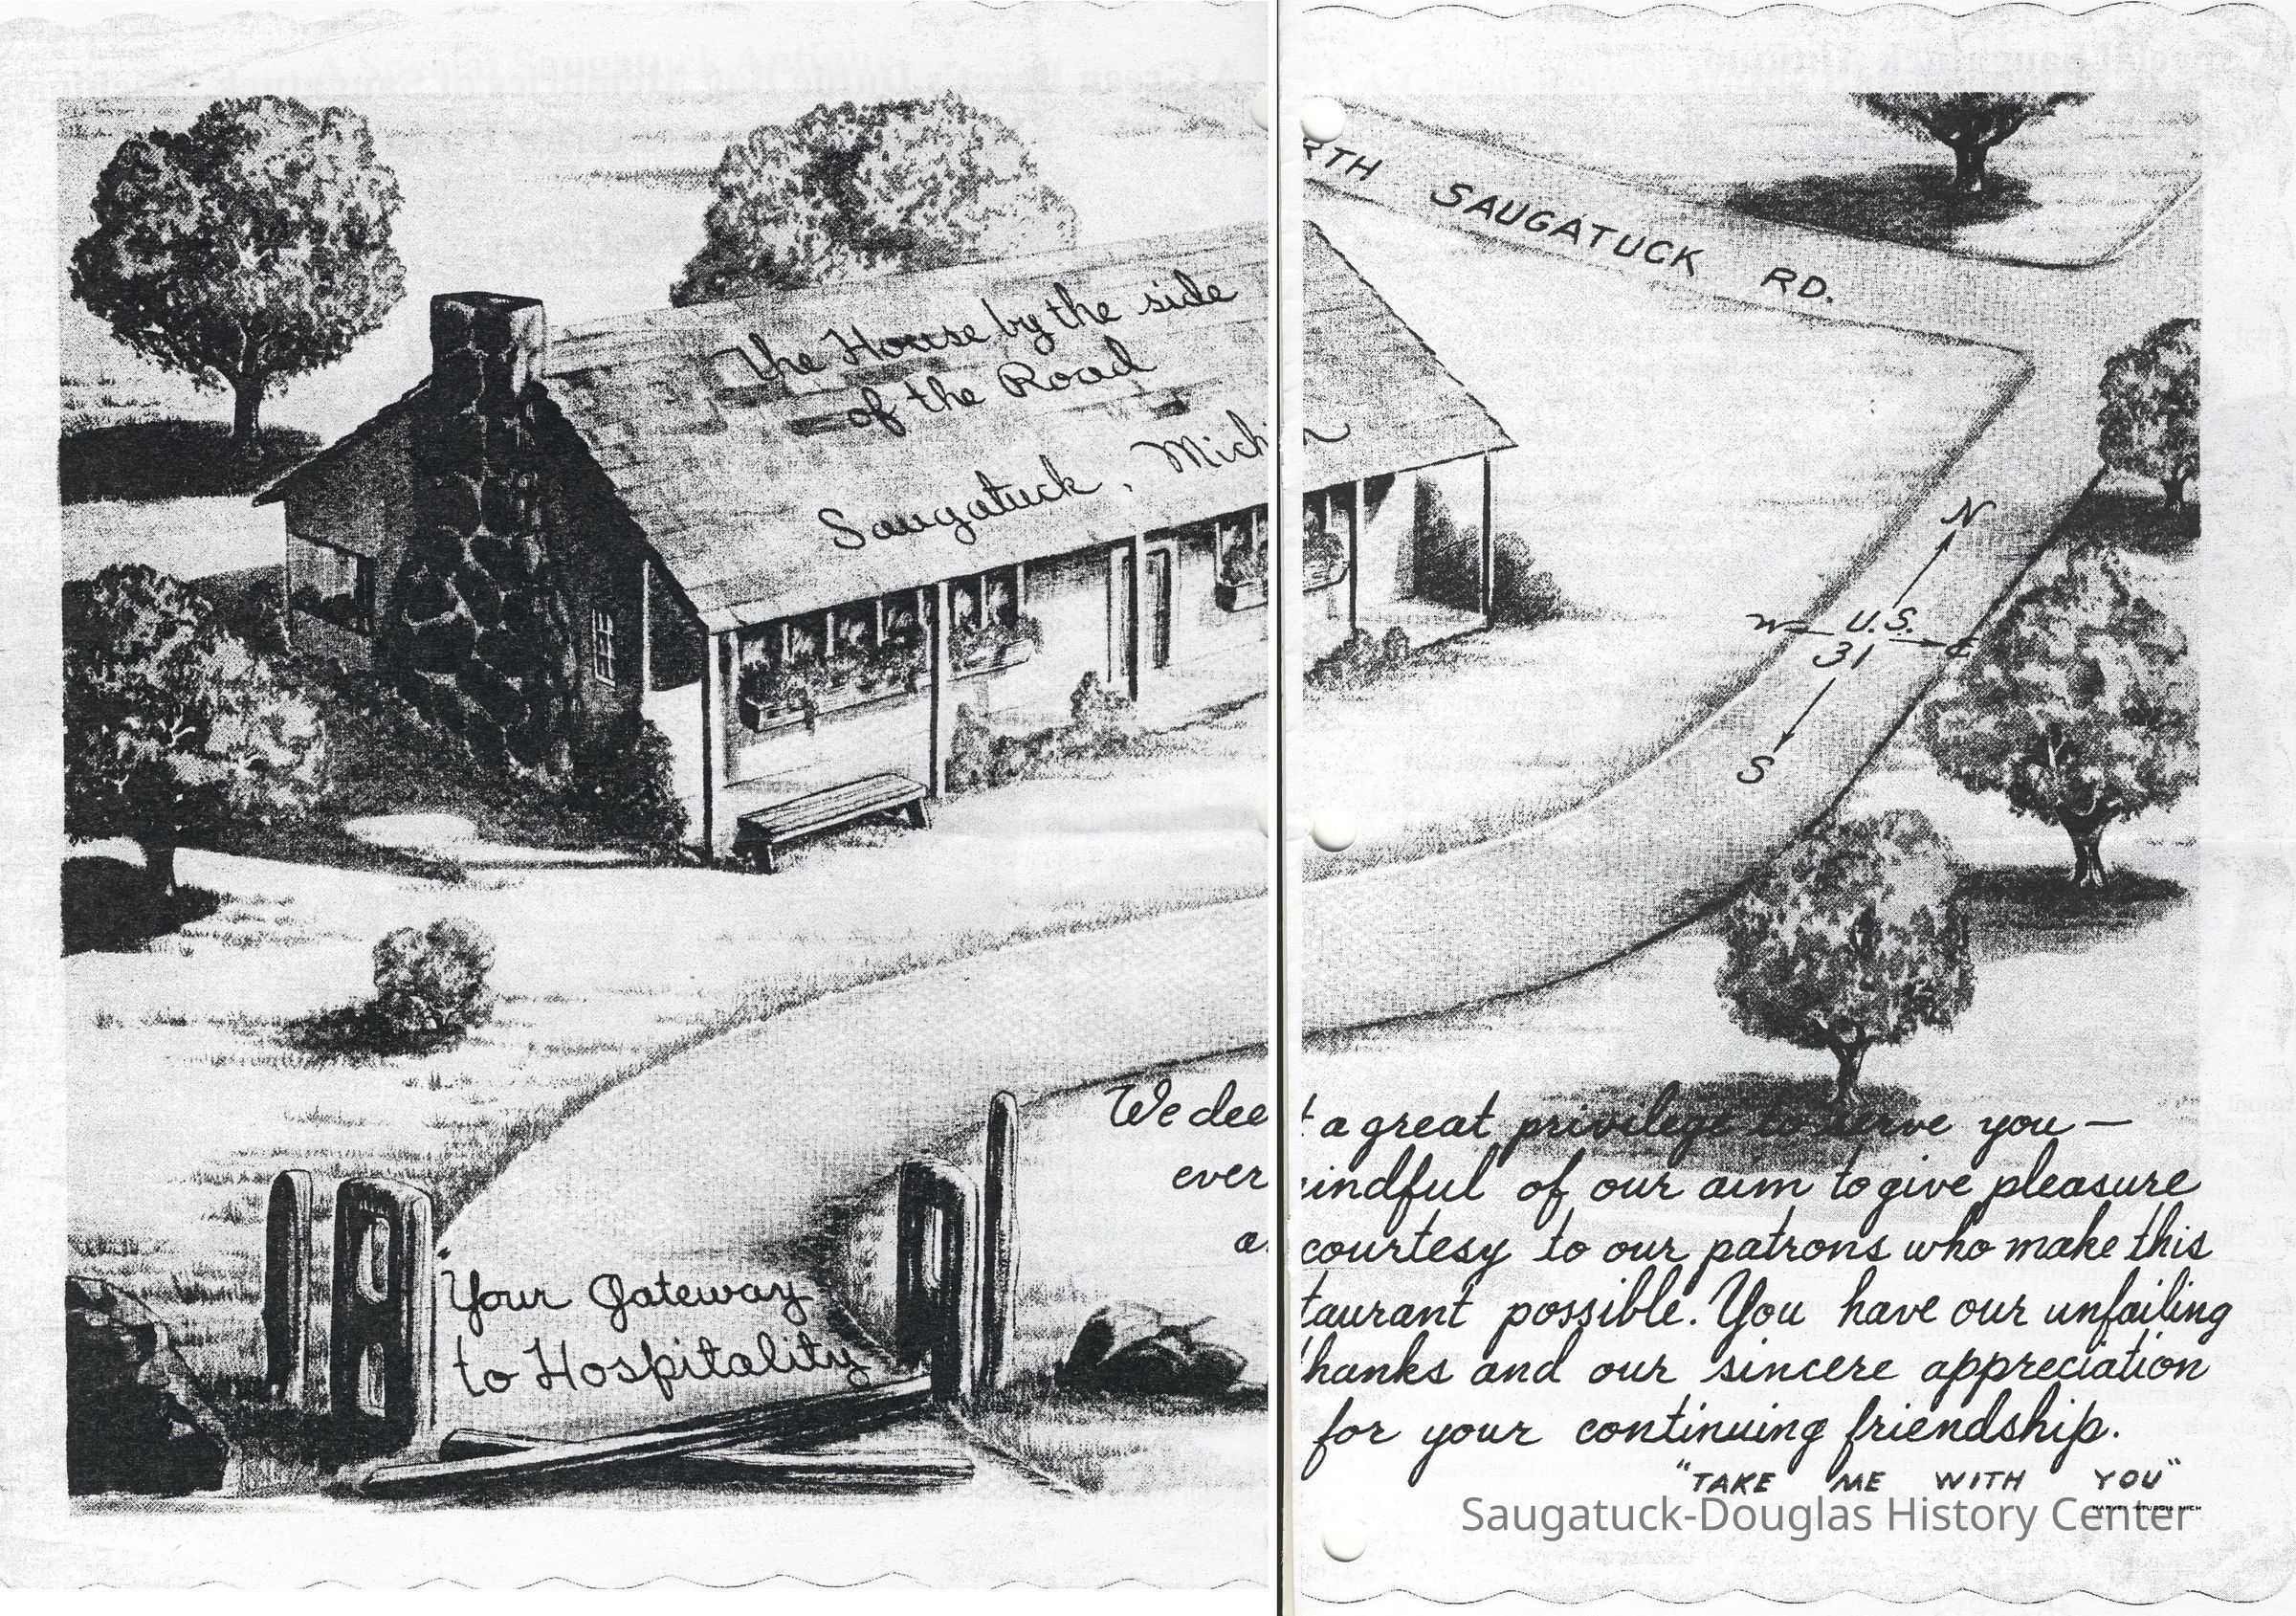 The House by the side
of the Road
Saugatuck, Michi n
RTH SAUGATUCK RD.
N
W U.S. E
31
S
Your Gateway
to Hospitality
We dee t a great privilege to serve you—
ever indful of our aim to give pleasure
a courtesy to our patrons who make this
taurant possible. You have our unfailing
hanks and our sincere appreciation
for your continuing friendship.
"TAKE ME WITH YOU"
HARVEY STURGIS MICH
Saugatuck-Douglas History Center